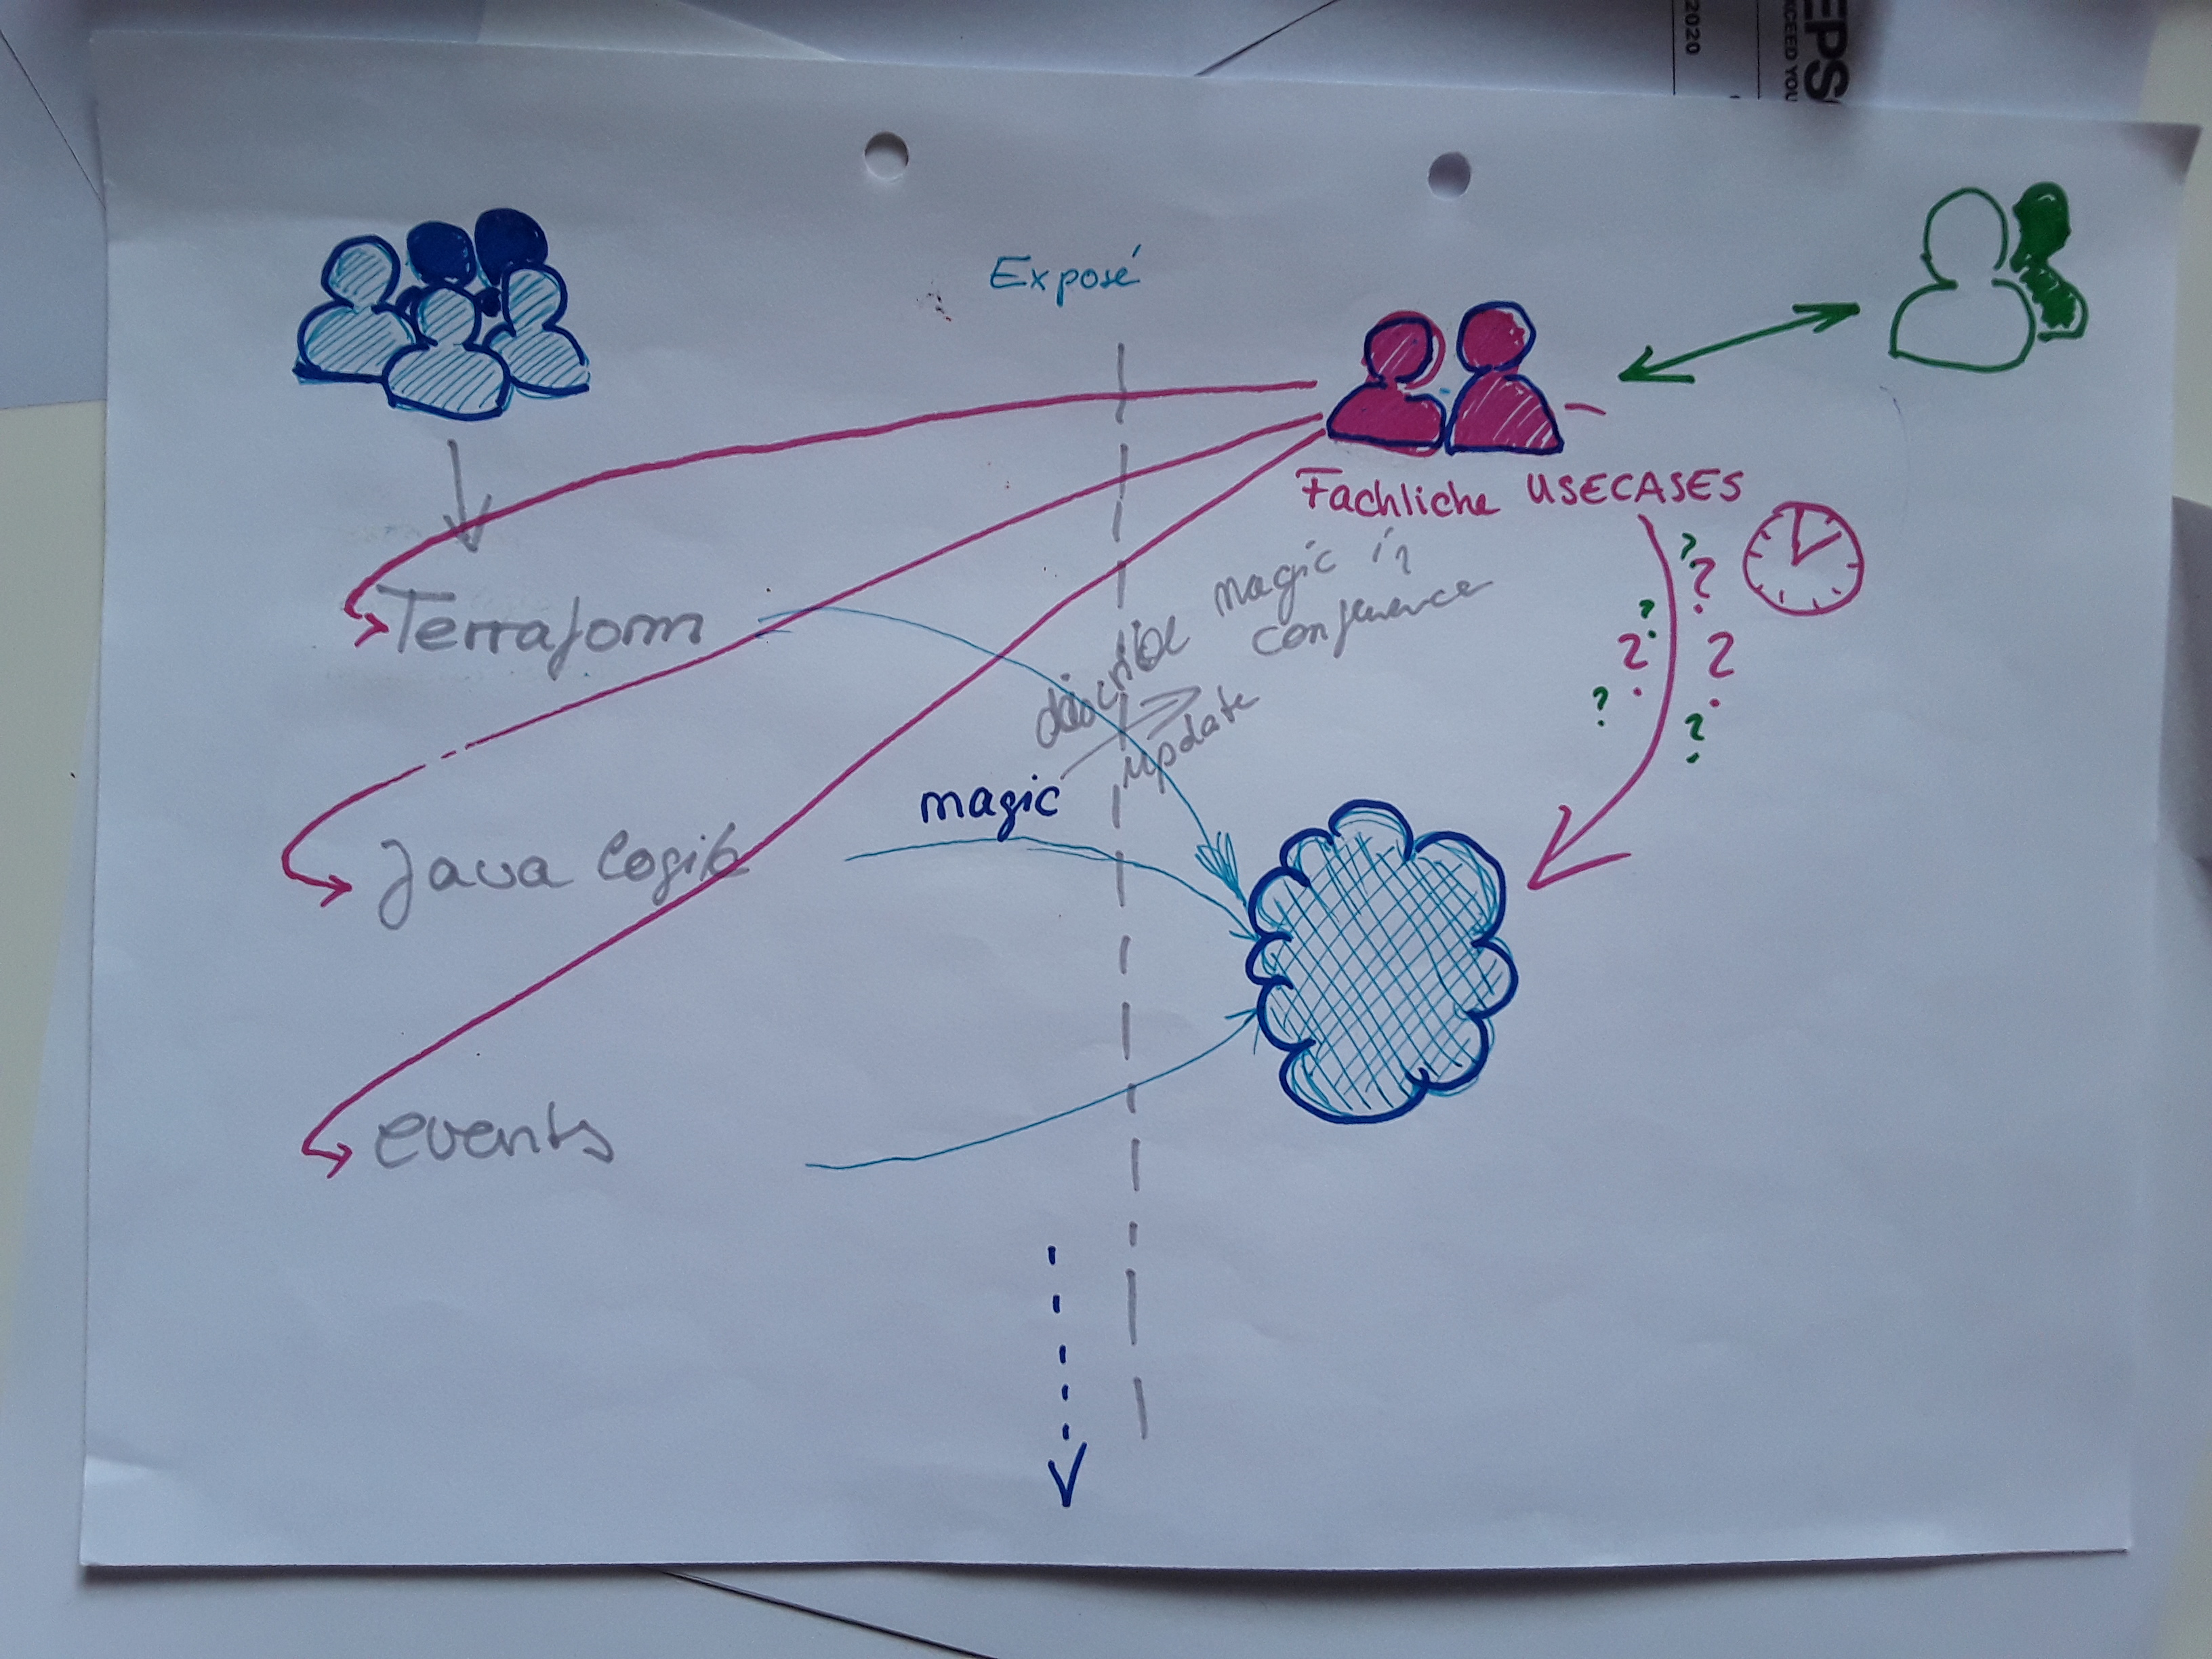 2020
EPS
XCEED YOU
Exposé
Fachliche USECASES
?
?
?
?
?
?
?
Terraform
describe magic in
confluence
update
magic
Java Logik
events